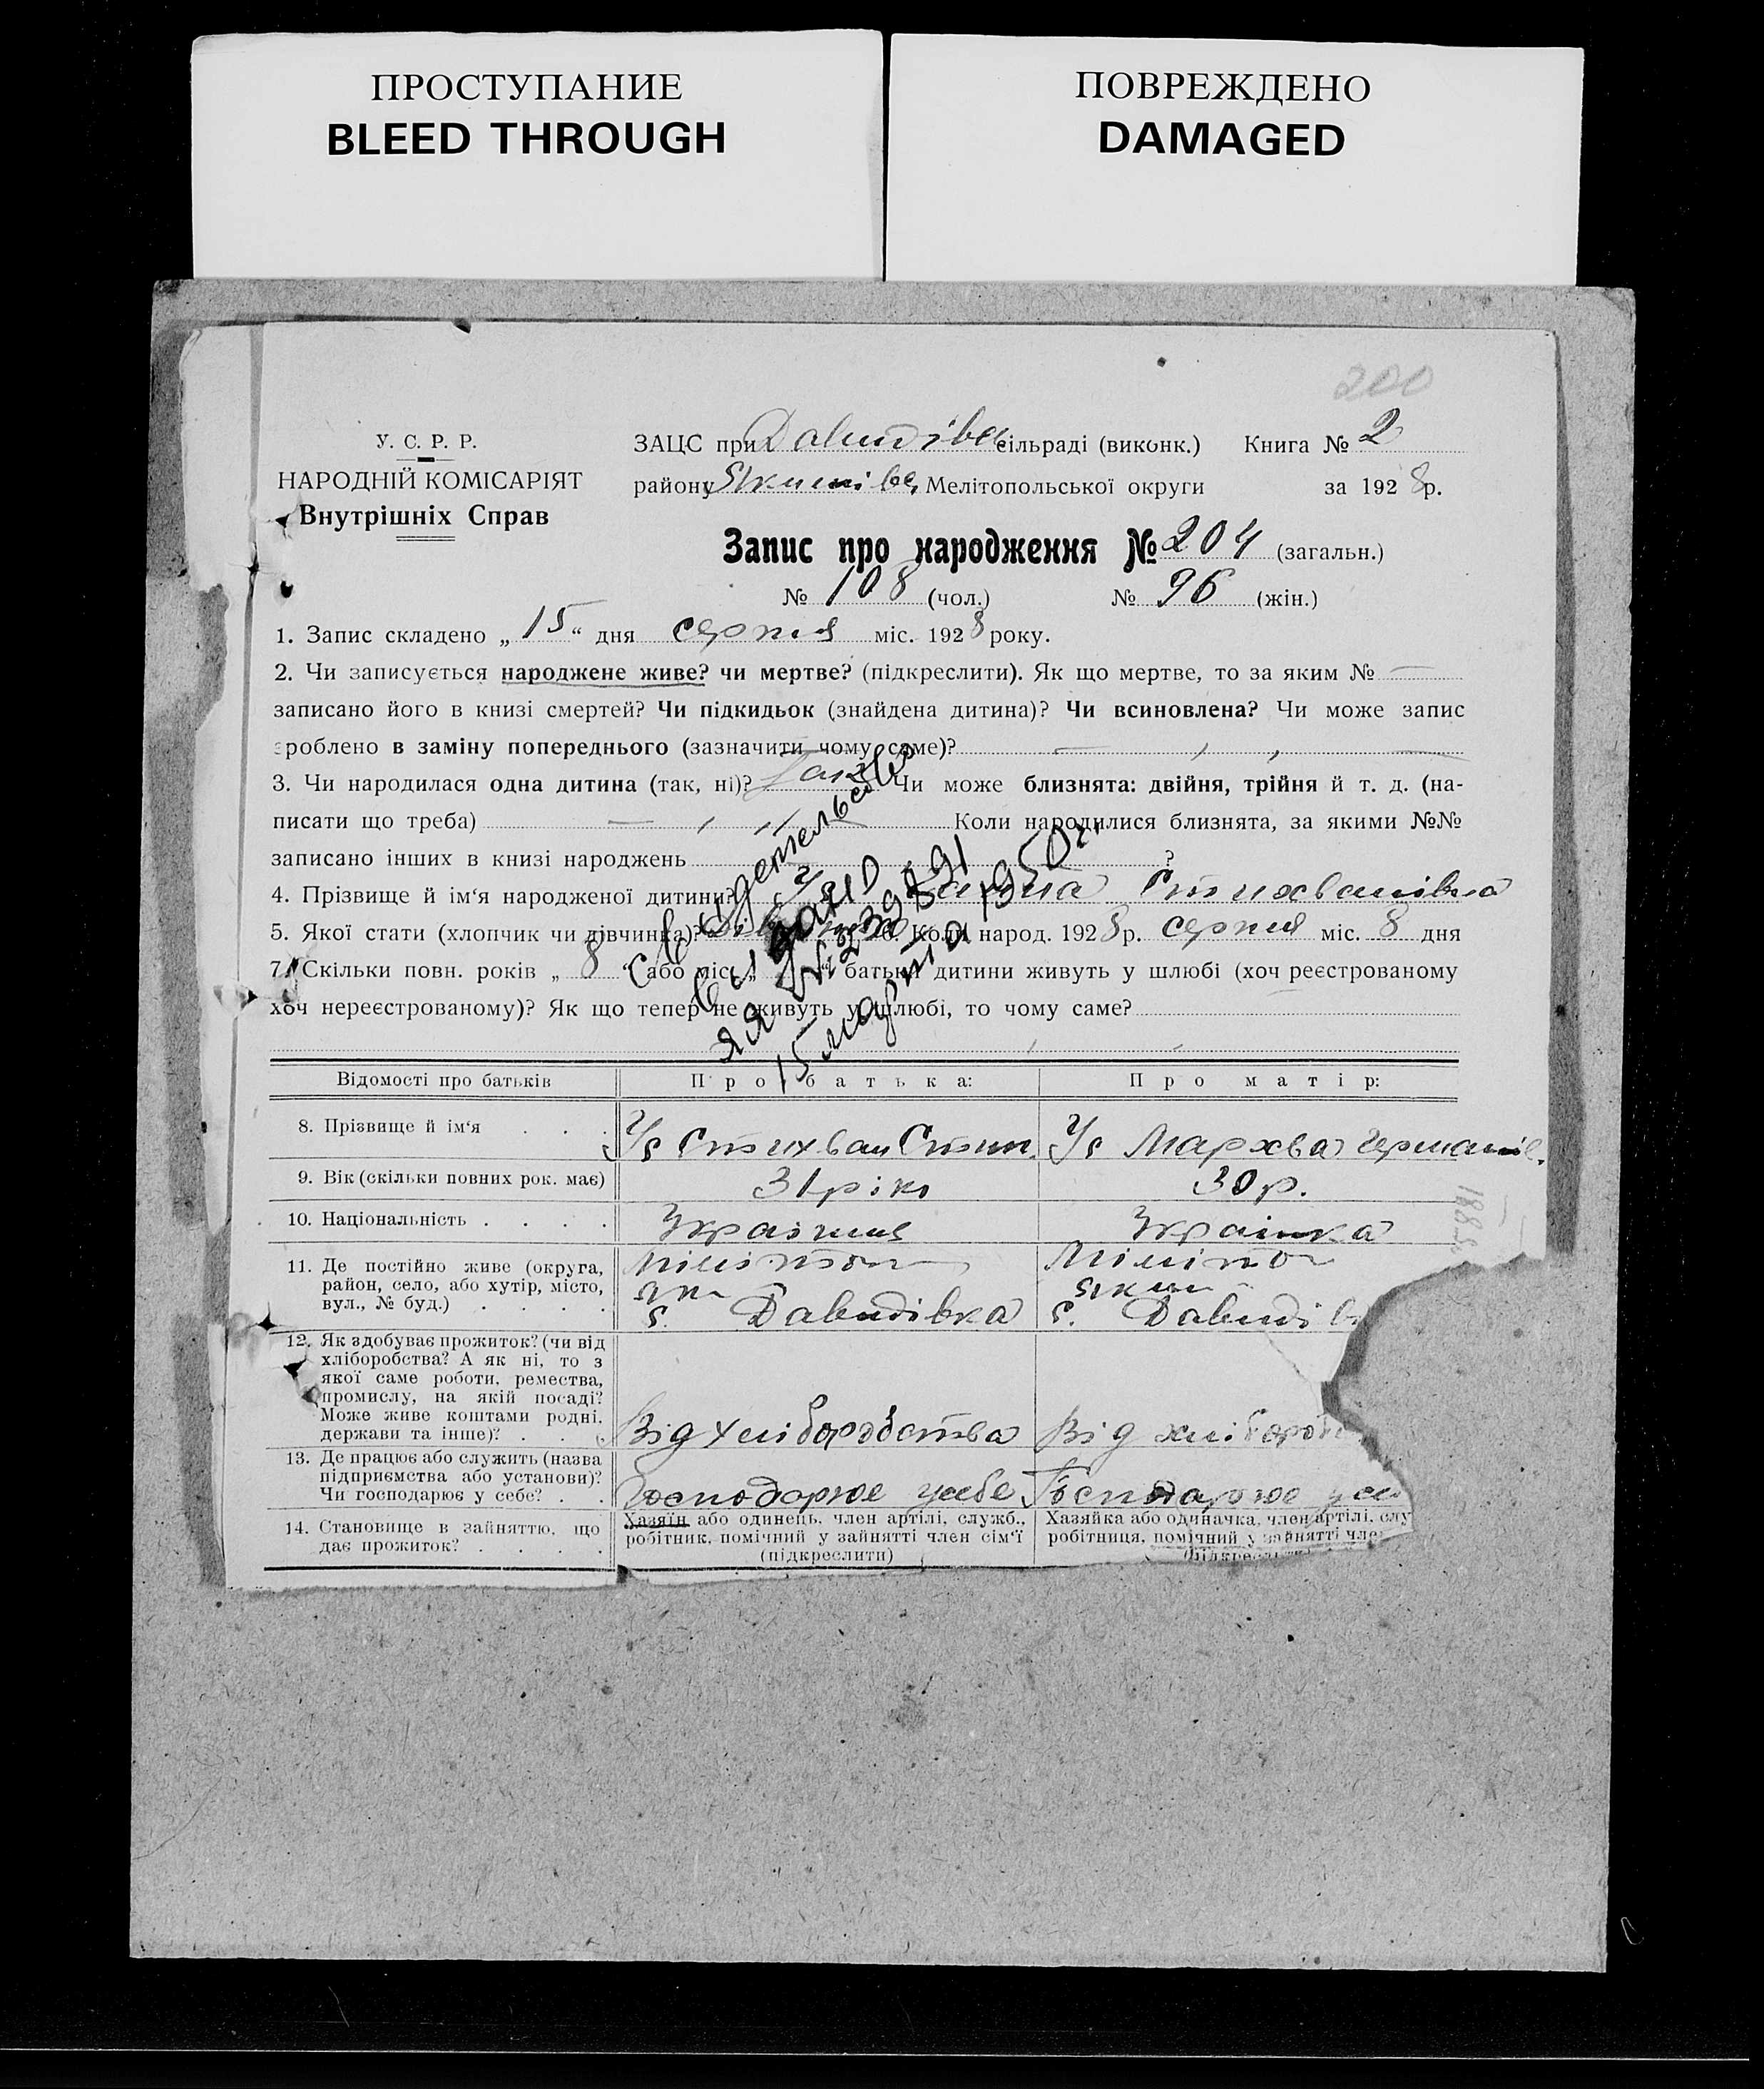 ПРОСТУПАНИЕ
BLEED THROUGH
ПОВРЕЖДЕНО
DAMAGED
200
У. С. Р. Р.
НАРОДНІЙ КОМІСАРІЯТ
Внутрішніх Справ
ЗАЦС при Давидівс сільраді (виконк.) Книга № 2
району Якимівс, Мелітопольської округи за 1928 р.
Запис про народження № 204 (загальн.)
№ 108 (чол.) № 96 (жін.)
1. Запис складено „15“ дня серпня міс. 1928 року.
2. Чи записується народжене живе? чи мертве? (підкреслити). Як що мертве, то за яким № —
записано його в книзі смертей? Чи підкидьок (знайдена дитина)? Чи всиновлена? Чи може запис
зроблено в заміну попереднього (зазначити чому саме)?
3. Чи народилася одна дитина (так, ні)? Так Чи може близнята: двійня, трійня й т. д. (на-
писати що треба) Коли народилися близнята, за якими №№
записано інших в книзі народжень ?
4. Прізвище й ім‘я народженої дитини?
5. Якої стати (хлопчик чи дівчинка)? 6. Коли народ. 1928 р. серпня міс. 8 дня
7. Скільки повн. років „ 8 “ (або міс. „ “ батьки дитини живуть у шлюбі (хоч реєстрованому
хоч нереєстрованому)? Як що тепер не живуть у шлюбі, то чому саме?
Свидетельство
выдано
15 марта 1950 г.
Відомості про батьків Про батька: Про матір:
8. Прізвище й ім‘я
9. Вік (скільки повних рок. має) 31 рік 30 р.
10. Національність Українець Українка
11. Де постійно живе (округа,
район, село, або хутір, місто,
вул., № буд.)
с. Давидівка с. Давидів
12. Як здобуває прожиток? (чи від
хліборобства? А як ні, то з
якої саме роботи, ремества,
промислу, на якій посаді?
Може живе коштами родні,
держави та інше)?
Від хліборобства Від хліборо
13. Де працює або служить (назва
підприємства або установи)?
Чи господарює у себе?
Господорює у себе
14. Становище в зайняттю, що
дає прожиток?
Хазяїн або одинець, член артілі, служб.,
робітник, помічний у зайнятті член сім‘ї
(підкреслити)
Хазяйка або одиначка, член артілі, слу
робітниця, помічний у зайнятті член